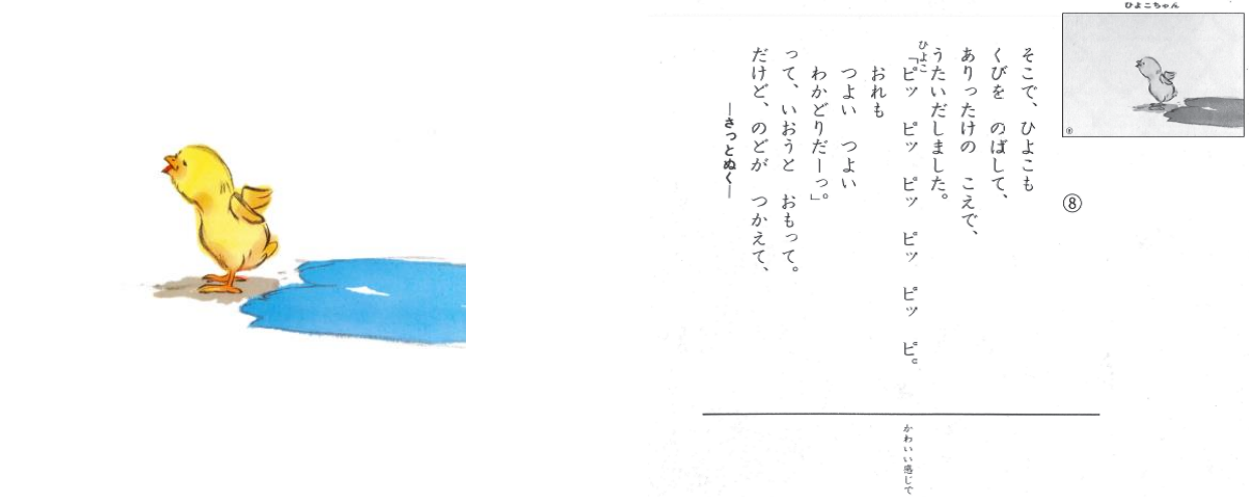 ひよこちゃん
⑧
そこで、ひよこも
くびを　のばして、
ありったけの　こえで、
うたいだしました。
ひよこ
「ピッ　ピッ　ピッ　ピッ　ピッ　ピ。
おれも
つよい　つよい
わかどりだーっ」。
って、いおうと　おもって。
だけど、のどが　つかえて、
―さっとぬく―
かわいい感じで